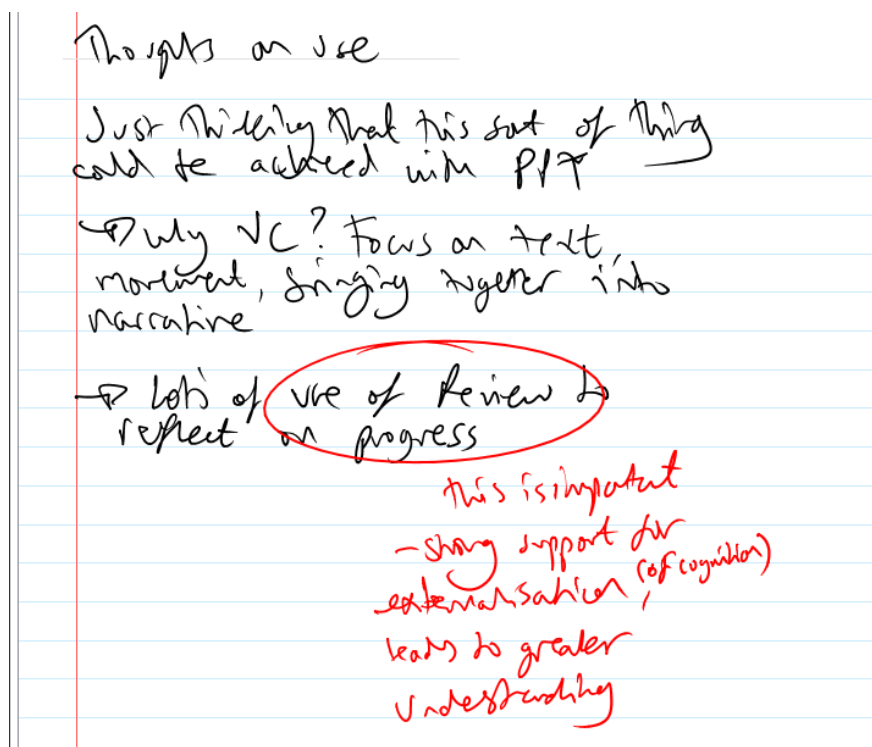 Thoughts on use
Just thinking that this sort of thing
could be achieved with PPT
→ why VC? Focus on text,
movement, bringing together into
narrative
→ Lots of use of Review to
reflect on progress
this is important
- strong support for
externalisation (of cognition),
leads to greater
understanding